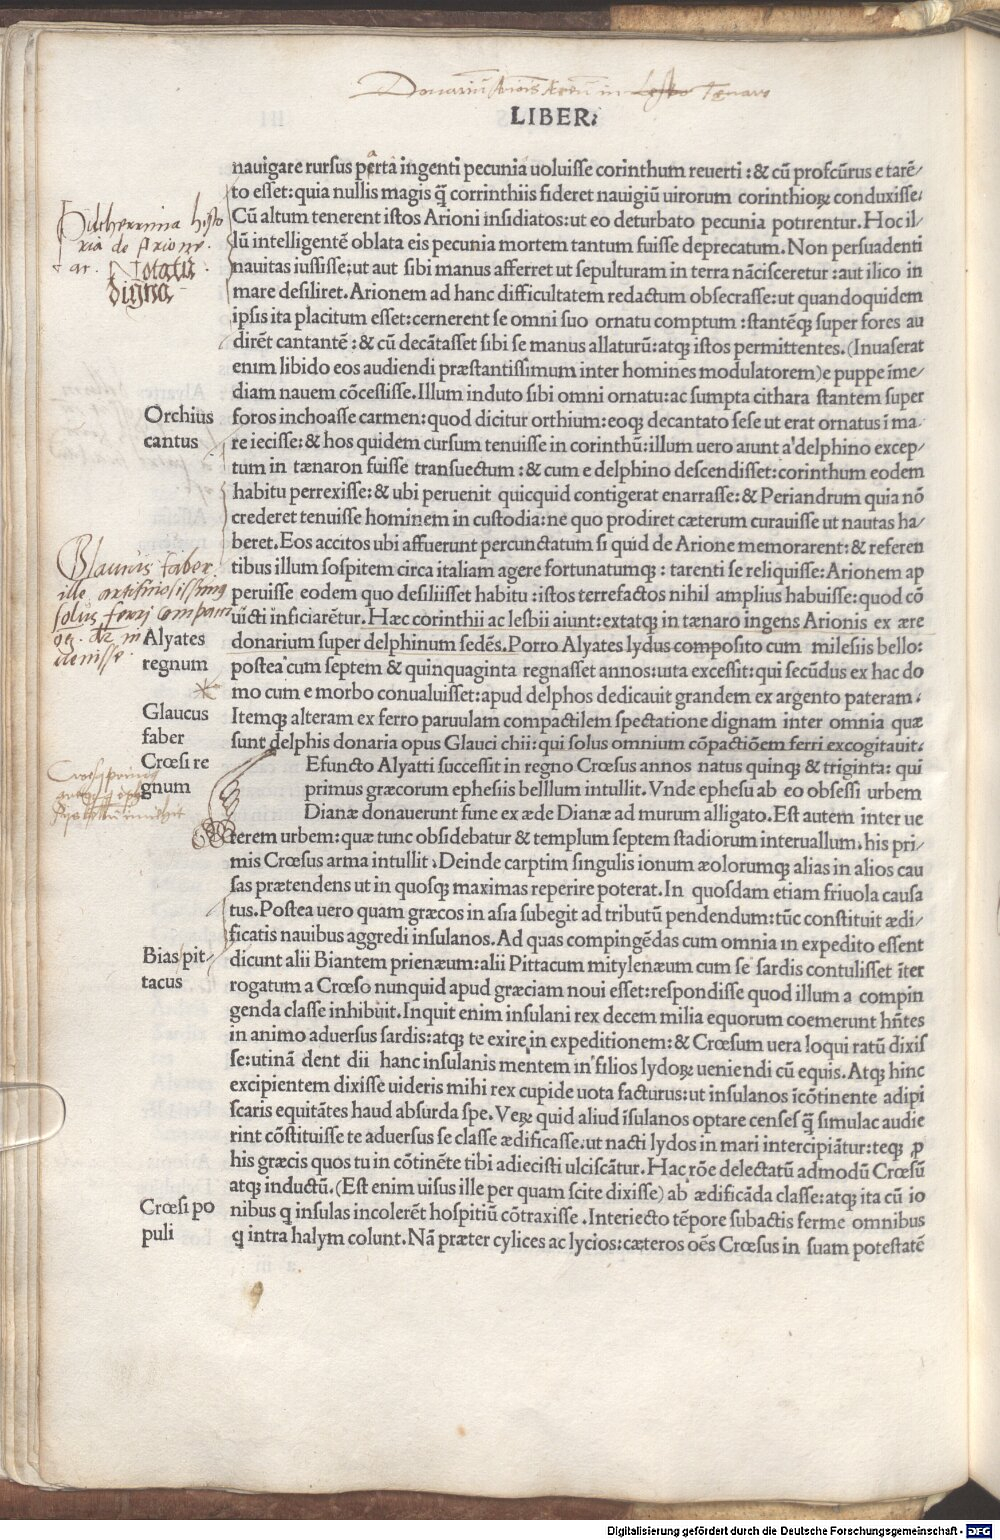 Donariũ Arionis æreũ in Lesbo Tænaro
LIBER.
nauigare rursus perta ingenti pecunia uoluisse corinthum reuerti:& cũ profcũrus e tarẽ/
to esset:quia nullis magis q̃ corrinthiis fideret nauigiũ uirorum corinthioꝝ conduxisse.
Cũ altum tenerent istos Arioni insidiatos:ut eo deturbato pecunia potirentur. Hoc il/
lũ intelligentẽ oblata eis pecunia mortem tantum fuisse deprecatum. Non persuadenti
nauitas iussisse:ut aut sibi manus afferret ut sepulturam in terra nãcisceretur:aut ilico in
mare desiliret. Arionem ad hanc difficultatem redactum obsecrasse:ut quandoquidem
ipsis ita placitum esset:cernerent se omni suo ornatu comptum:stantẽqꝫ super fores au
dirẽt cantantẽ:& cũ decãtasset sibi se manus allaturũ:atqꝫ istos permittentes.(Inuaserat
enim libido eos audiendi præstantissimum inter homines modulatorem)e puppe ĩme/
diam nauem cõcessisse. Illum induto sibi omni ornatu:ac sumpta cithara stantem super
foros inchoasse carmen:quod dicitur orthium:eoqꝫ decantato sese ut erat ornatus ĩ ma/
re iecisse:& hos quidem cursum tenuisse in corinthũ:illum uero aiunt a delphino excep/
tum in tænaron fuisse transuectum:& cum e delphino descendisset:corinthum eodem
habitu perrexisse:& ubi peruenit quicquid contigerat enarrasse:& Periandrum quia nõ
crederet tenuisse hominem in custodia:ne quo prodiret cæterum curauisse ut nautas ha/
beret. Eos accitos ubi affuerunt percunctatum si quid de Arione memorarent:& referen
tibus illum sospitem circa italiam agere fortunatumqꝫ:tarenti se reliquisse:Arionem ap
peruisse eodem quo desiliisset habitu:istos terrefactos nihil amplius habuisse:quod cõ
uicti inficiarẽtur. Hæc corinthii ac lesbii aiunt:extatqꝫ in tænaro ingens Arionis ex ære
donarium super delphinum sedẽs. Porro Alyates lydus composito cum milesiis bello:
postea cum septem & quinquaginta regnasset annos:uita excessit:qui secũdus ex hac do
mo cum e morbo conualuisset:apud delphos dedicauit grandem ex argento pateram.
Itemqꝫ alteram ex ferro paruulam compactilem spectatione dignam inter omnia quæ
sunt delphis donaria opus Glauci chii:qui solus omnium cõpactiõem ferri excogitauit.
Efuncto Alyatti successit in regno Crœsus annos natus quinqꝫ & triginta: qui
primus græcorum ephesiis belllum intullit. Vnde ephesu ab eo obsessi urbem
Dianæ donauerunt fune ex æde Dianæ ad murum alligato. Est autem inter ue
terem urbem:quæ tunc obsidebatur & templum septem stadiorum interuallum. his pri/
mis Crœsus arma intullit. Deinde carptim singulis ionum æolorumqꝫ alias in alios cau
sas prætendens ut in quosqꝫ maximas reperire poterat. In quosdam etiam friuola causa
tus. Postea uero quam græcos in asia subegit ad tributũ pendendum:tũc constituit ædi/
ficatis nauibus aggredi insulanos. Ad quas compingẽdas cum omnia in expedito essent
dicunt alii Biantem prienæum:alii Pittacum mitylenæum cum se sardis contulisset ĩter
rogatum a Crœso nunquid apud græciam noui esset:respondisse quod illum a compin
genda classe inhibuit. Inquit enim insulani rex decem milia equorum coemerunt hñtes
in animo aduersus sardis:atqꝫ te exire in expeditionem:& Crœsum uera loqui ratũ dixis
se:utinã dent dii hanc insulanis mentem in filios lydoꝝ ueniendi cũ equis. Atqꝫ hinc
excipientem dixisse uideris mihi rex cupide uota facturus:ut insulanos ĩcõtinente adipi
scaris equitãtes haud absurda spe. Veꝝ quid aliud ĩsulanos optare censes q̃ simulac audie
rint cõstituisse te aduersus se classe ædificasse.ut nacti lydos in mari intercipiãtur:teqꝫ ꝓ
his græcis quos tu in cõtinẽte tibi adiecisti ulciscãtur. Hac rõe delectatũ admodũ Crœsũ
atqꝫ inductũ.(Est enim uisus ille per quam scite dixisse) ab ædificãda classe:atqꝫ ita cũ io
nibus q insulas incolerẽt hospitiũ cõtraxisse. Interiecto tẽpore subactis ferme omnibus
q intra halym colunt. Nã præter cylices ac lycios:cæteros oẽs Crœsus in suam potestatẽ
Pulcherrima histo
ria de Arione.
Notatu
digna
Orchius
cantus
Glaucus faber
ille artificiosissimus
solus ferri compacti
Alyates
regnum
Glaucus
faber
Crœsi re
gnum
Bias pit-
tacus
Crœsi po
puli
Digitalisierung gefördert durch die Deutsche Forschungsgemeinschaft - DFG